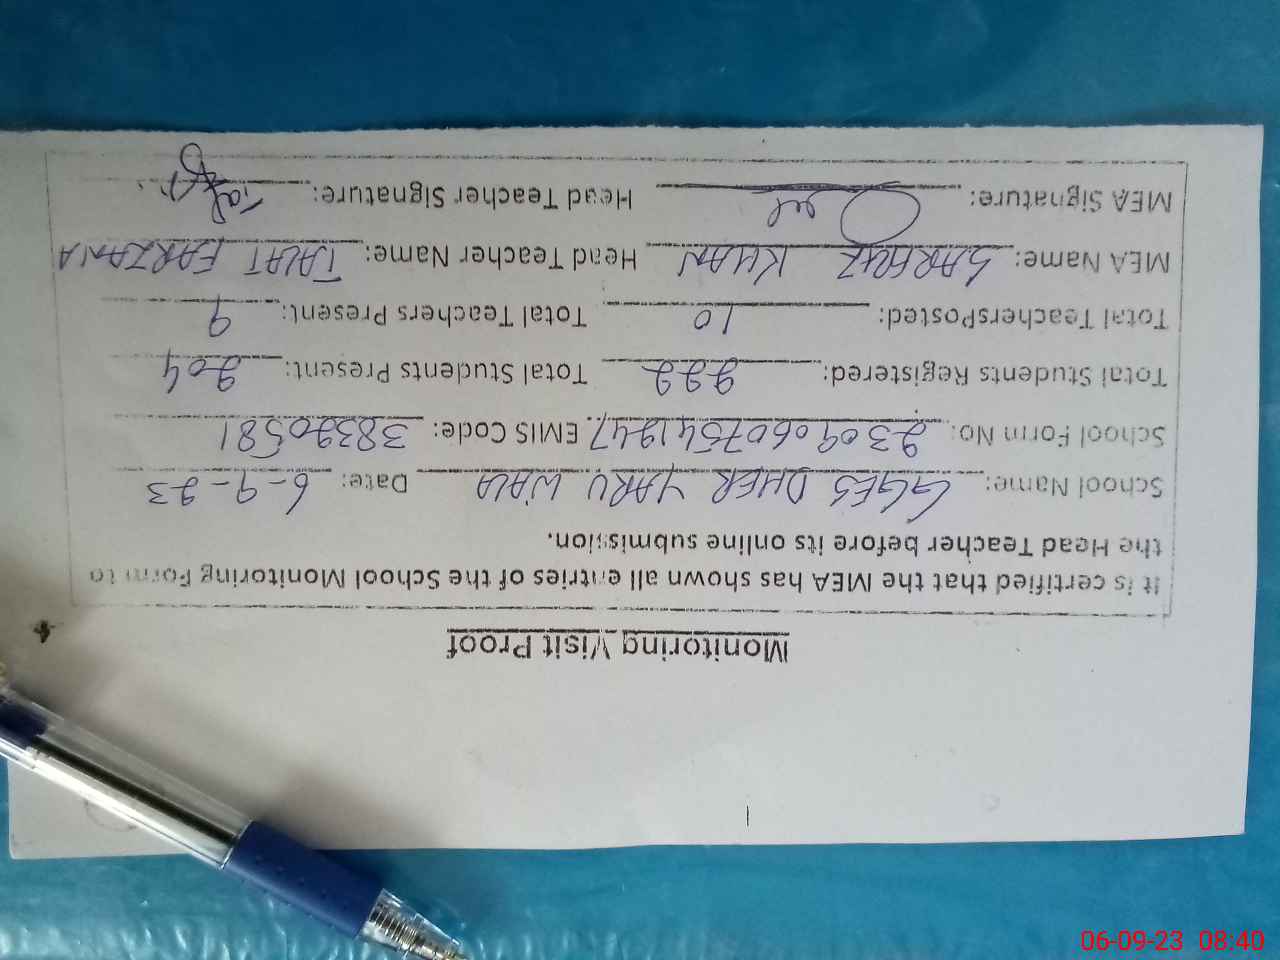 Monitoring Visit Proof
It is certified that the MEA has shown all entries of the School Monitoring Form to
the Head Teacher before its online submission.
School Name: GGES DHER YARU WALA Date: 6-9-23
School Form No: 23090607541247 EMIS Code: 38320581
Total Students Registered: 222 Total Students Present: 204
Total TeachersPosted: 10 Total Teachers Present: 9
MEA Name: SARFRAZ KHAN Head Teacher Name: TALAT FARZANA
MEA Signature: Head Teacher Signature:
06-09-23 08:40